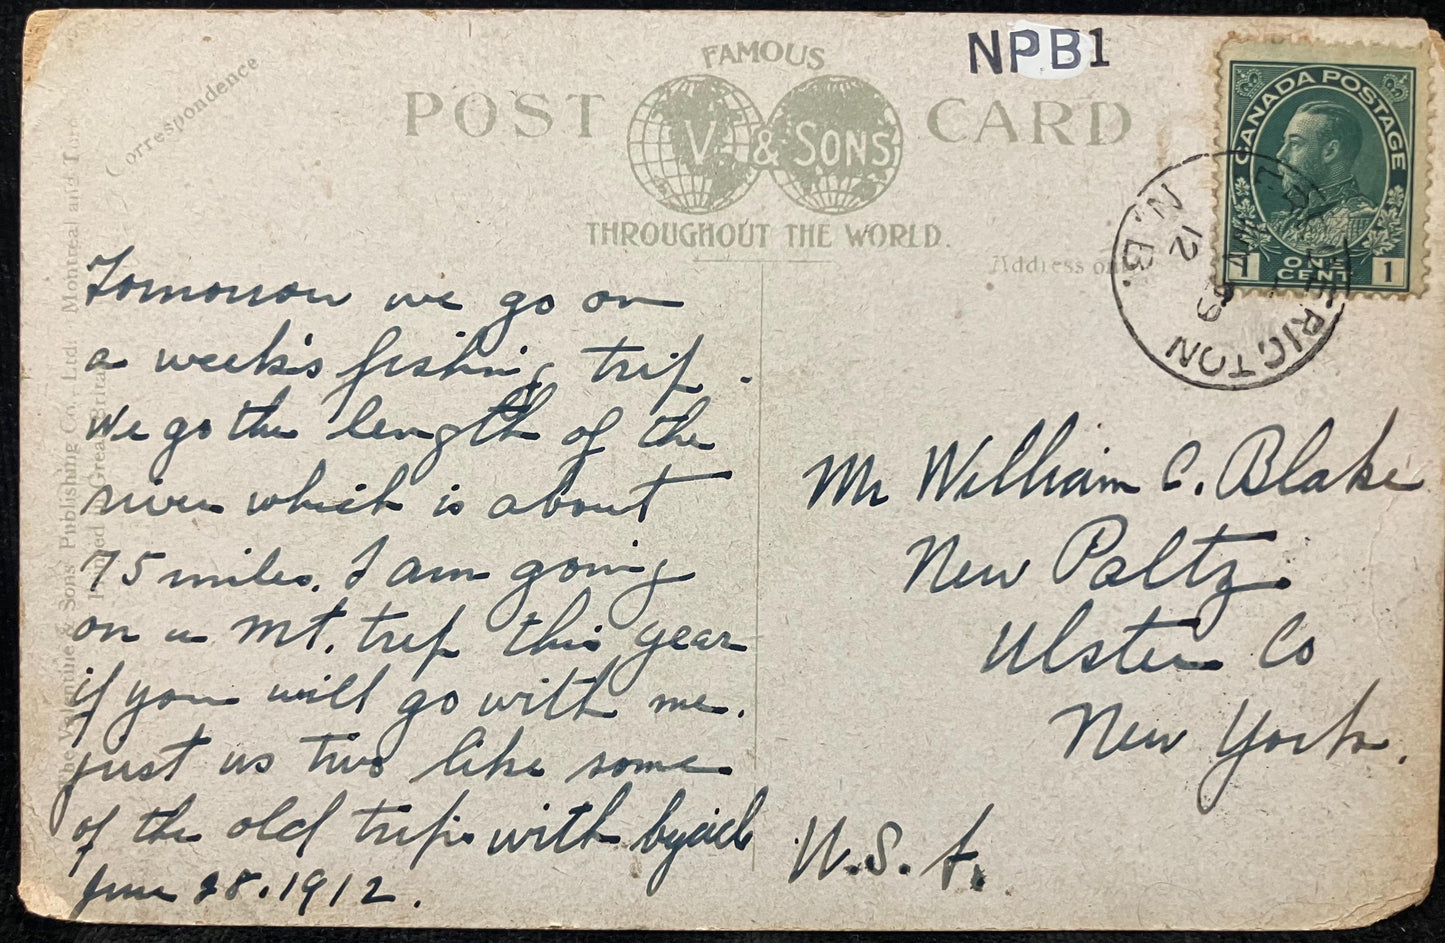 NPB1
FAMOUS
POST CARD
V. & SONS
THROUGHOUT THE WORLD.
Correspondence
Address only
CANADA POSTAGE
1 ONE CENT 1
FREDERICTON
N.B.
12
The Valentine & Sons' Publishing Co., Ltd. Montreal and Toronto
Printed in Great Britain
Tomorrow we go on
a week's fishing trip.
We go the length of the
river which is about
75 miles. I am going
on a Mt. trip this year
if you will go with me.
just us two like some
of the old trips with
June 28. 1912.
Mr William C. Blake
New Paltz
Ulster Co
New York.
U.S.A.